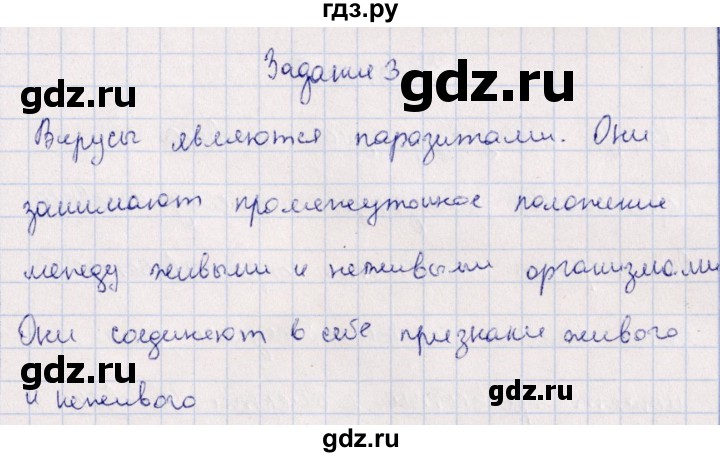 гдз.ру
Задание 3
gdz.ru
gdz.ru
Вирусы являются паразитами. Они
занимают промежуточное положение
gdz.ru
gdz.ru
между живыми и неживыми организмами
Они соединяют в себе признаки живого
gdz.ru
gdz.ru
и неживого
gdz.ru